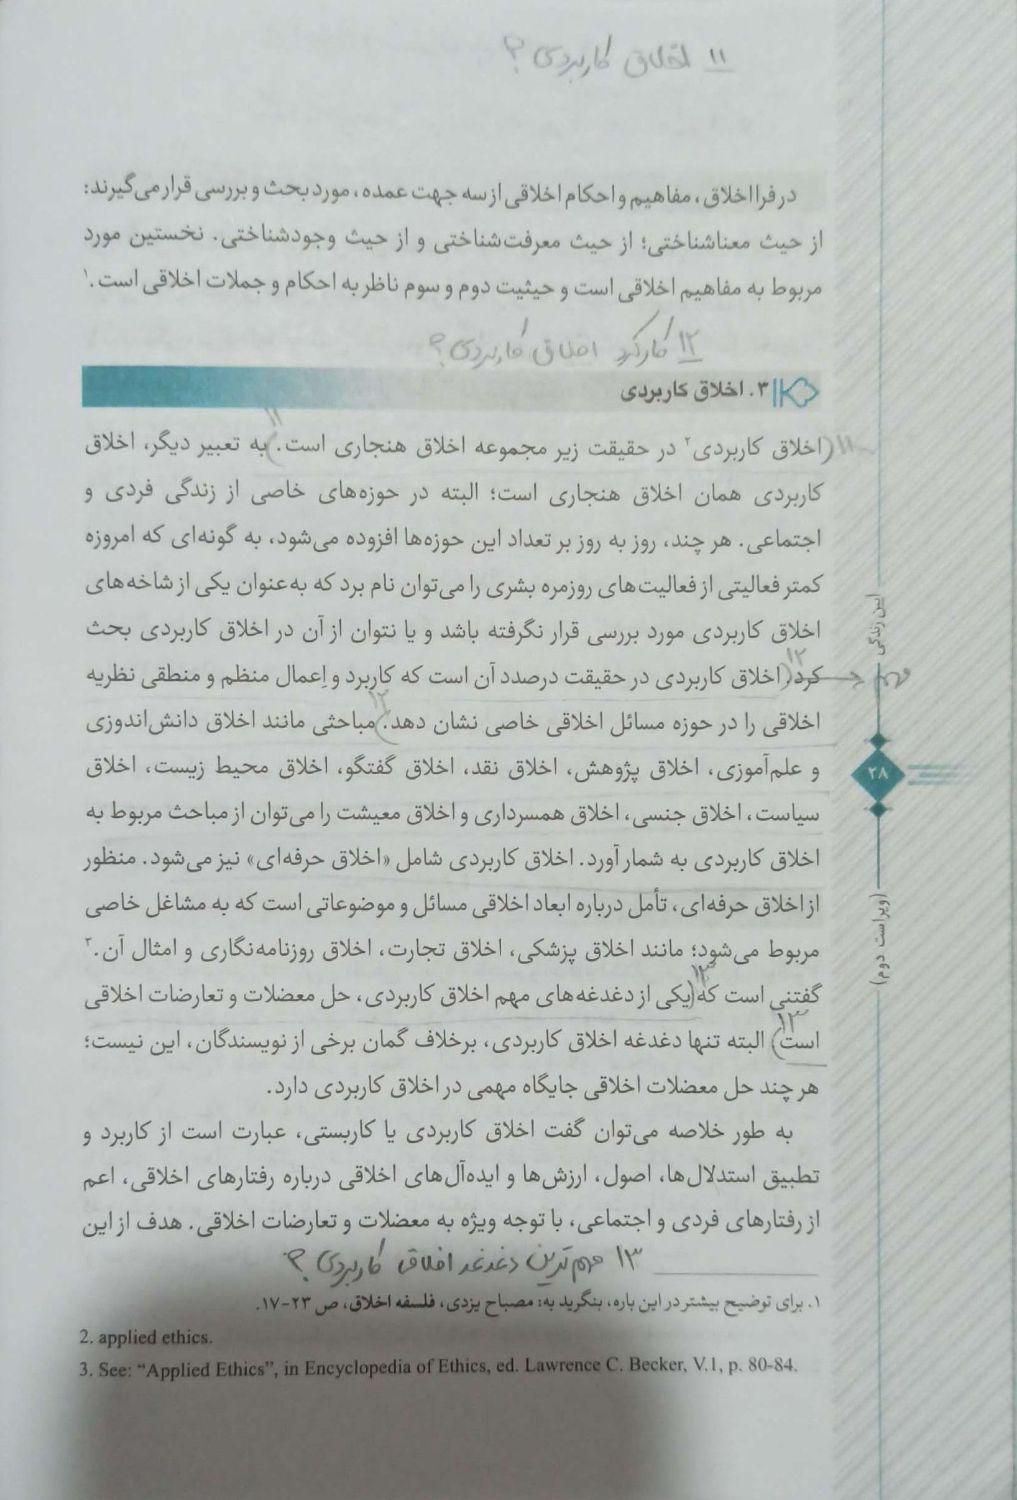 ۱۱ اخلاق کاربردی؟
در فرااخلاق، مفاهیم و احکام اخلاقی از سه جهت عمده، مورد بحث و بررسی قرار می‌گیرند:
از حیث معناشناختی؛ از حیث معرفت‌شناختی و از حیث وجودشناختی. نخستین مورد
مربوط به مفاهیم اخلاقی است و حیثیت دوم و سوم ناظر به احکام و جملات اخلاقی است.۱
۱۲ کارکرد اخلاق کاربردی؟
۳. اخلاق کاربردی
۱۱ (اخلاق کاربردی۲ در حقیقت زیر مجموعه اخلاق هنجاری است.) ۱۱ به تعبیر دیگر، اخلاق
کاربردی همان اخلاق هنجاری است؛ البته در حوزه‌های خاصی از زندگی فردی و
اجتماعی. هر چند، روز به روز بر تعداد این حوزه‌ها افزوده می‌شود، به گونه‌ای که امروزه
کمتر فعالیتی از فعالیت‌های روزمره بشری را می‌توان نام برد که به‌عنوان یکی از شاخه‌های
اخلاق کاربردی مورد بررسی قرار نگرفته باشد و یا نتوان از آن در اخلاق کاربردی بحث
کرد. ۱۲ (اخلاق کاربردی در حقیقت درصدد آن است که کاربرد و اِعمال منظم و منطقی نظریه
مهم
اخلاقی را در حوزه مسائل اخلاقی خاصی نشان دهد.) ۱۲ مباحثی مانند اخلاق دانش‌اندوزی
و علم‌آموزی، اخلاق پژوهش، اخلاق نقد، اخلاق گفتگو، اخلاق محیط زیست، اخلاق
سیاست، اخلاق جنسی، اخلاق همسرداری و اخلاق معیشت را می‌توان از مباحث مربوط به
اخلاق کاربردی به شمار آورد. اخلاق کاربردی شامل «اخلاق حرفه‌ای» نیز می‌شود. منظور
از اخلاق حرفه‌ای، تأمل درباره ابعاد اخلاقی مسائل و موضوعاتی است که به مشاغل خاصی
مربوط می‌شود؛ مانند اخلاق پزشکی، اخلاق تجارت، اخلاق روزنامه‌نگاری و امثال آن.۳
گفتنی است که ۱۳ (یکی از دغدغه‌های مهم اخلاق کاربردی، حل معضلات و تعارضات اخلاقی
است) ۱۳ البته تنها دغدغه اخلاق کاربردی، برخلاف گمان برخی از نویسندگان، این نیست؛
هر چند حل معضلات اخلاقی جایگاه مهمی در اخلاق کاربردی دارد.
به طور خلاصه می‌توان گفت اخلاق کاربردی یا کاربستی، عبارت است از کاربرد و
تطبیق استدلال‌ها، اصول، ارزش‌ها و ایده‌آل‌های اخلاقی درباره رفتارهای اخلاقی، اعم
از رفتارهای فردی و اجتماعی، با توجه ویژه به معضلات و تعارضات اخلاقی. هدف از این
۱۳ مهم ترین دغدغه اخلاق کاربردی؟
۱. برای توضیح بیشتر در این باره، بنگرید به: مصباح یزدی، فلسفه اخلاق، ص ۲۳-۱۷.
2. applied ethics.
3. See: “Applied Ethics”, in Encyclopedia of Ethics, ed. Lawrence C. Becker, V.1, p. 80-84.
آیین زندگی
۲۸
(ویراست دوم)